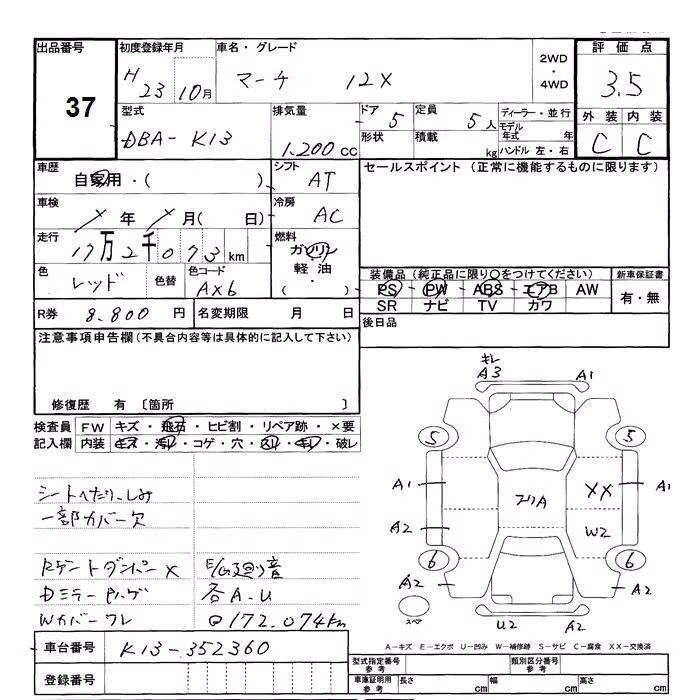 出品番号 初度登録年月 車名・グレード 2WD・4WD 評価点
37 H23 10月 マーチ 12X 3.5
型式 排気量 ドア 5 定員 5人 ディーラー・並行 外装 内装
DBA-K13 1.200cc 形状 積載 kg モデル年式 年 ハンドル 左・右 C C
車歴 シフト セールスポイント (正常に機能するものに限ります)
自家用・( ) AT
車検 冷房
年 月( 日) AC
走行 燃料
17万2千073km ガソリン
色 色替 色コード 軽油 装備品(純正品に限り○をつけてください) 新車保証書
レッド AX6 ・( ) PS PW ABS エアB AW 有・無
R券 8.800円 名変期限 月 日 SR ナビ TV カワ
後日品
注意事項申告欄(不具合内容等は具体的に記入して下さい)
修復歴 有 〔箇所 〕
検査員 FW キズ・飛石・ヒビ割・リペア跡・×要
記入欄 内装 キズ・汚れ・コゲ・穴・スレ・キレ・破レ
シートへたり、しみ
一部カバー欠
Rゲートダンパー× E/G廻り音
Dミラーハゲ 各A.U
Wカバーワレ ◎172.074km
車台番号 K13-352360
登録番号
キレ
A3 A1
5 5
A1 フリA XX A1
A2 W2
6 6
A2 A2
スペア U2 A2
A-キズ E-エクボ U-凹み W-補修跡 S-サビ C-腐食 XX-交換済
型式指定番号 参考 類別区分番号 参考
車庫証明用 参考 長さ cm 幅 cm 高さ cm